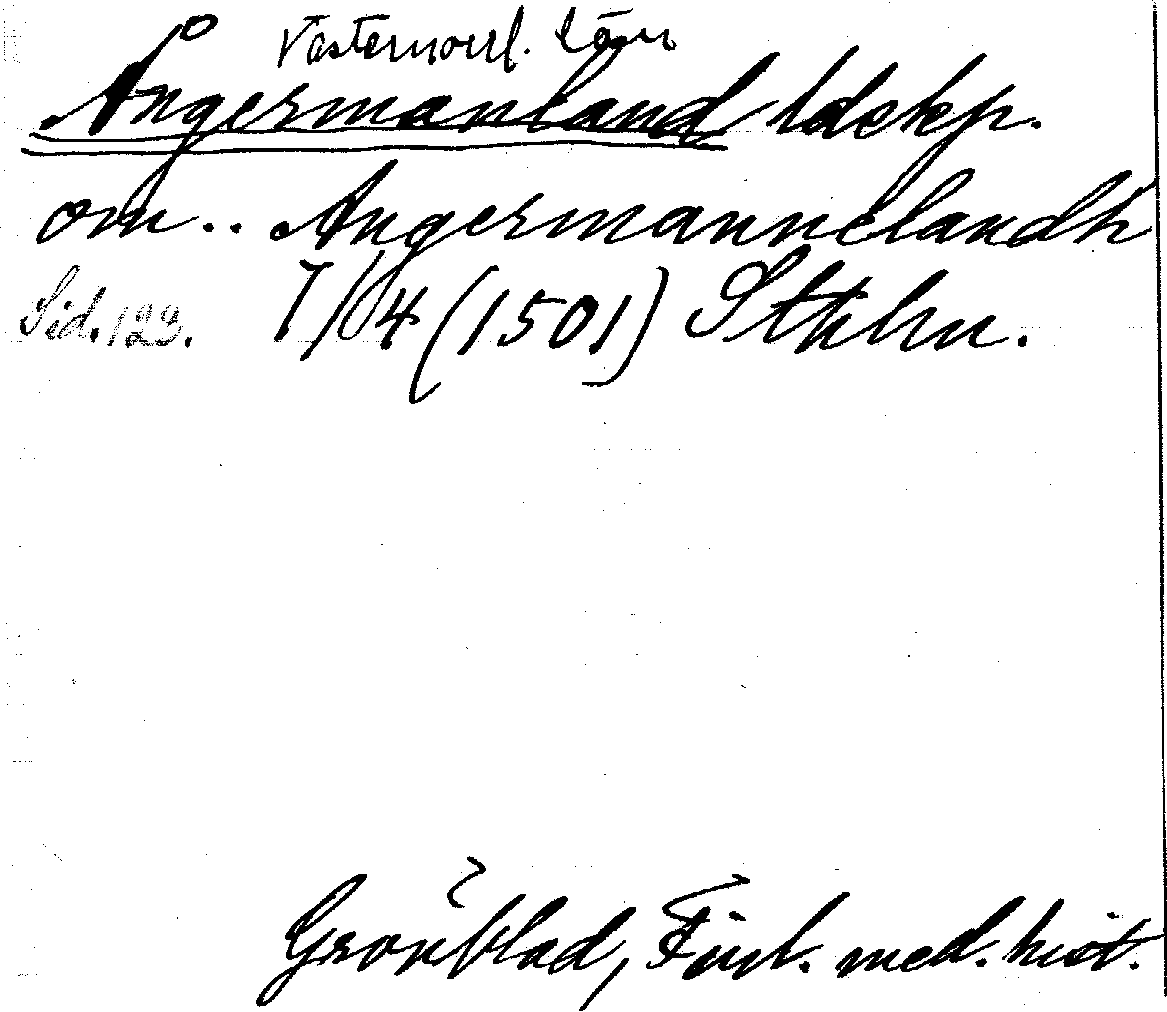 Västernorrl. län
Ångermanland ldskp.
om .. Angermannelandh
Sid. 123. 7/4 (1501) Sthlm.
Grönblad, Finl. med. hist.